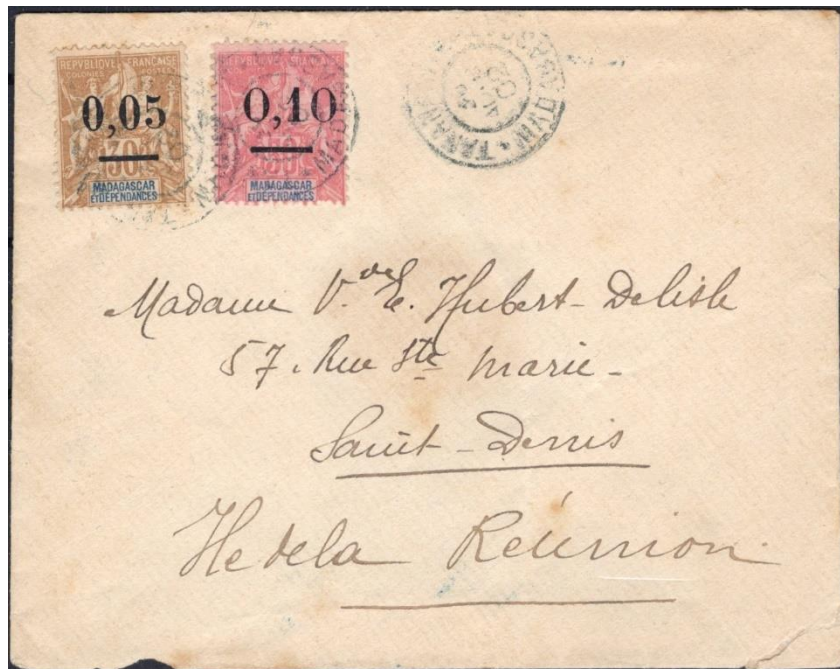 REPUBLIQUE FRANÇAISE
COLONIES POSTES
0,05
30
MADAGASCAR
ET DÉPENDANCES
REPUBLIQUE FRANÇAISE
0,10
50
MADAGASCAR
ET DÉPENDANCES
Madame Vve E. Hubert-Delisle
57. Rue Ste Marie-
Saint-Denis
Ile de la Réunion.